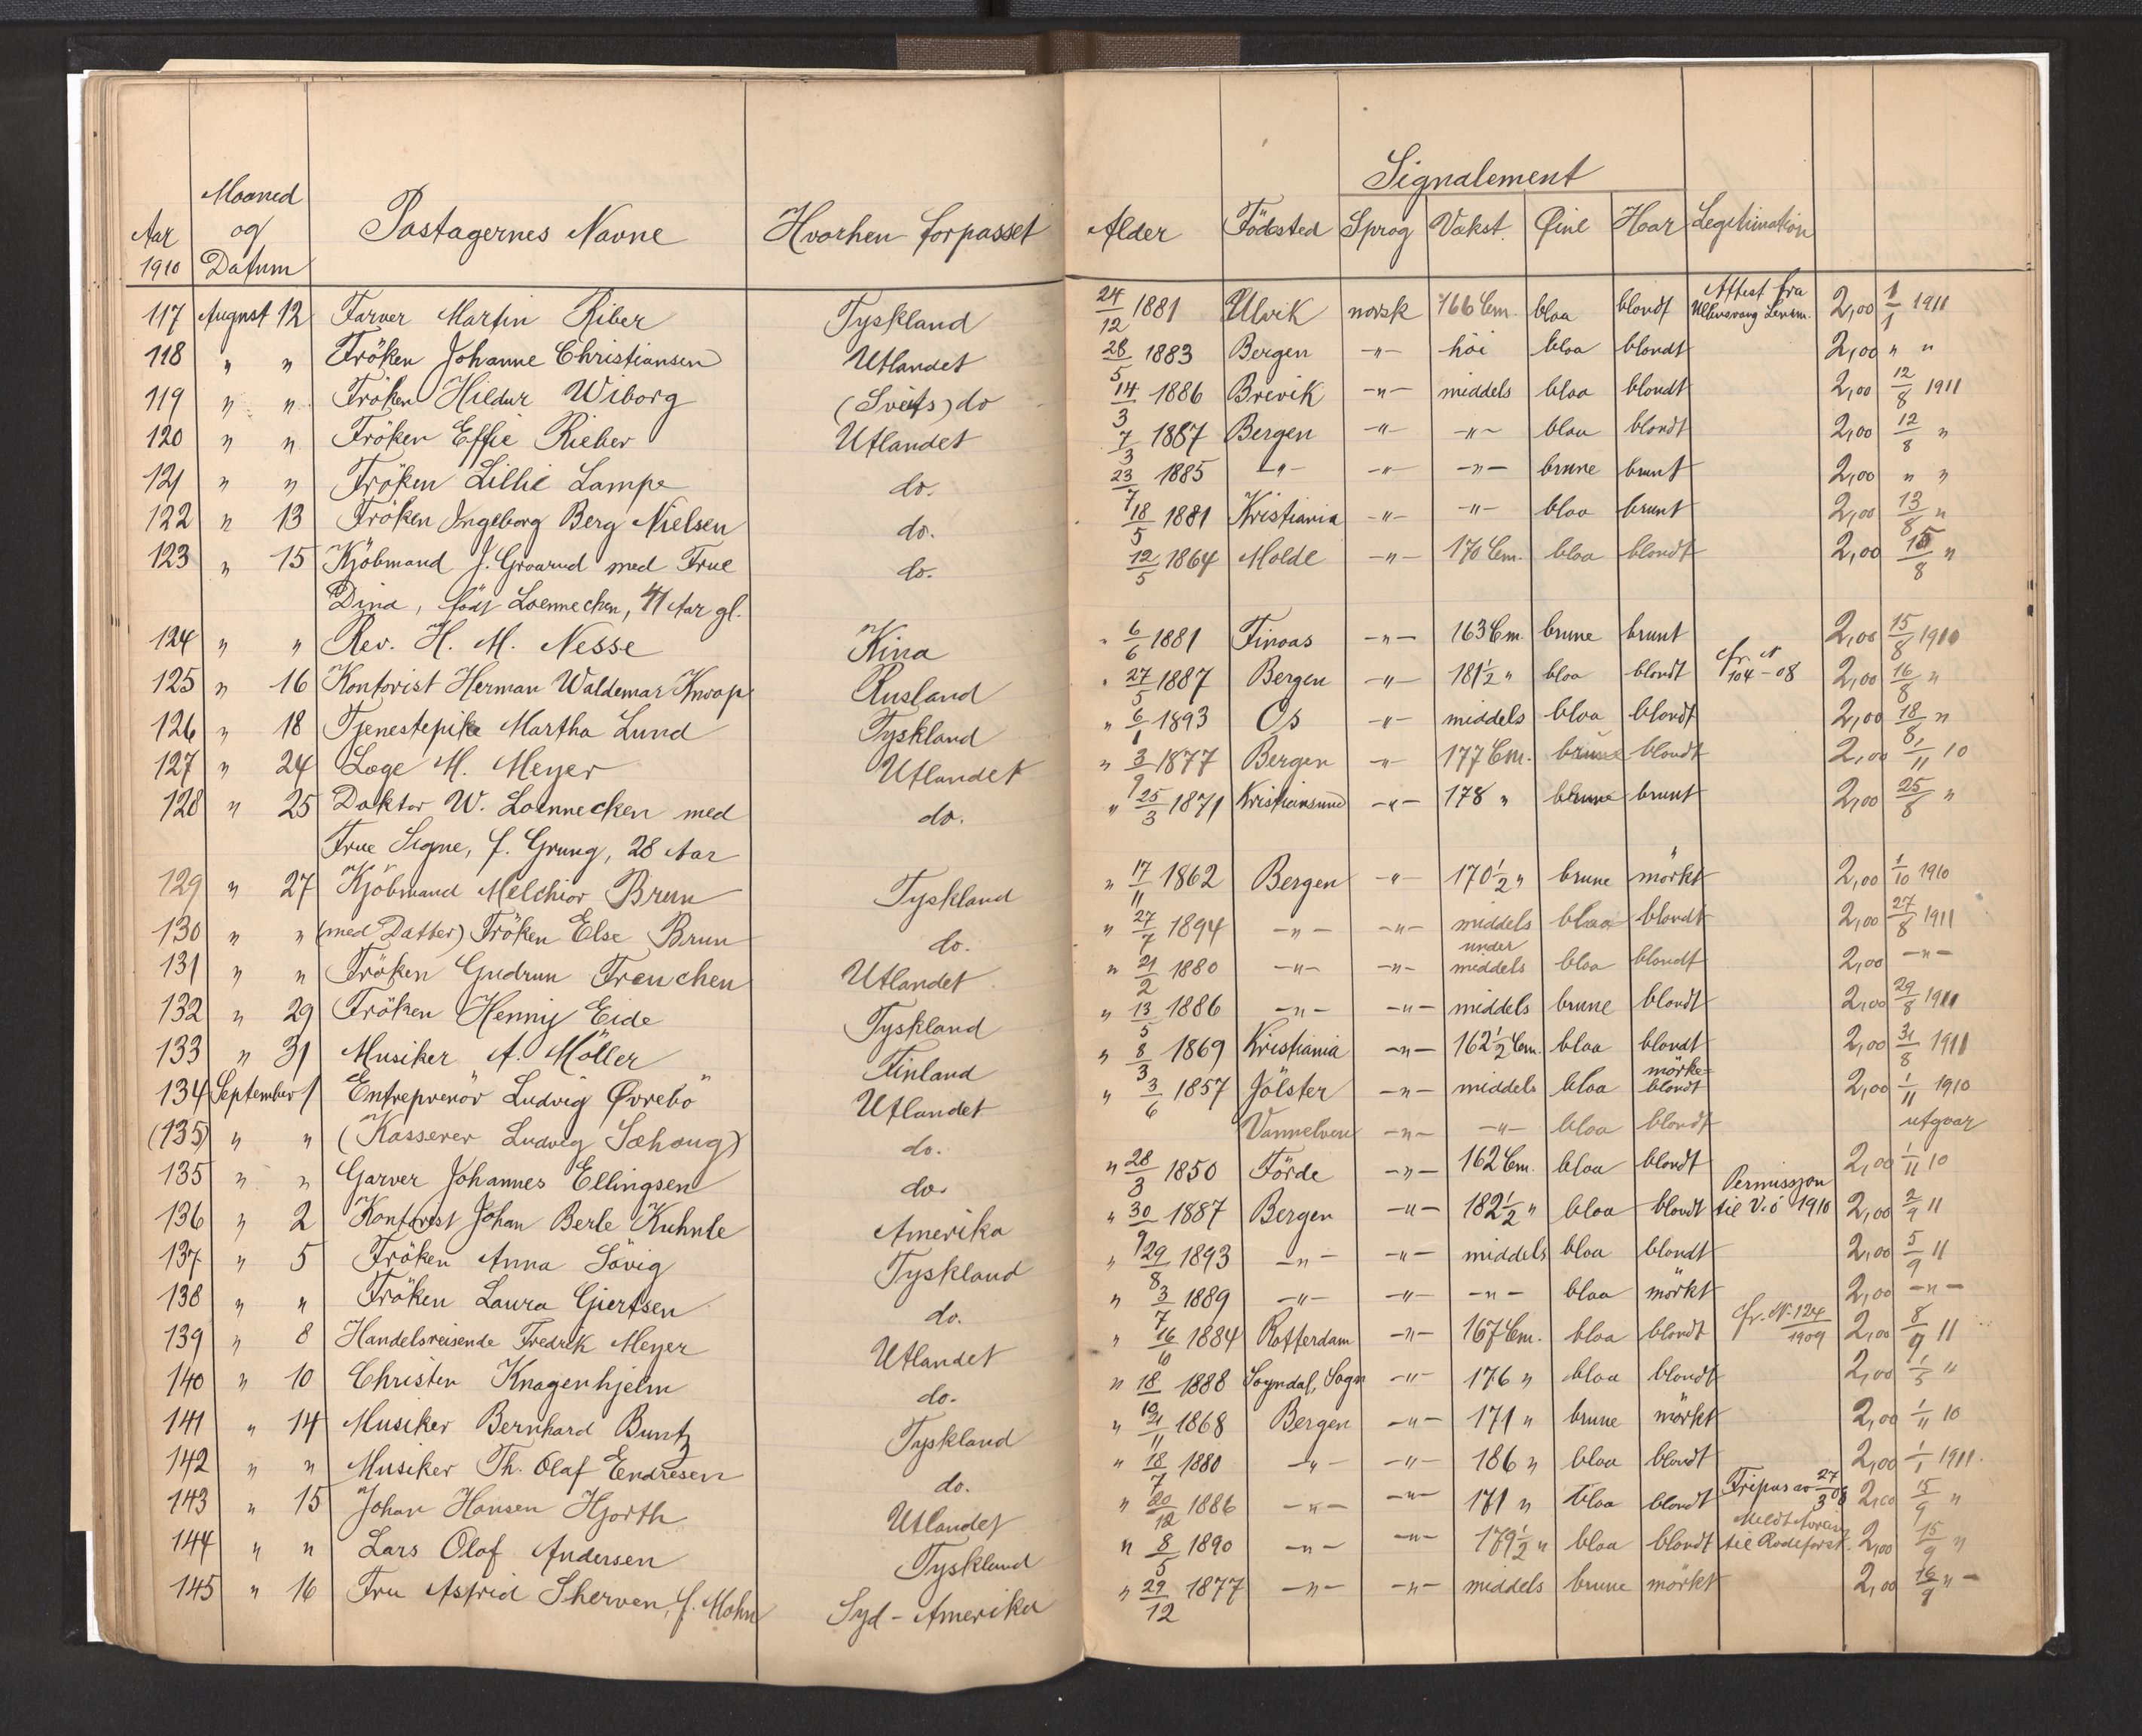 Signalement
Aar 1910 Maaned og Datum Pastagernes Navne Hvorhen forpasset Alder Födested Sprog Vækst. Øine Haar Legitimation
117 August 12 Farver Martin Riber Tyskland 24/12 1881 Ulvik norsk 166 Cm. blaa blondt Attest fra Ullensvang Lensm. 2,00 1/1 1911
118 " " Fröken Johanne Christiansen Utlandet 28/5 1883 Bergen -"- höi blaa blondt 2,00 " "
119 " " Fröken Hildur Wiborg (Sveits) do 14/3 1886 Brevik -"- middels blaa blondt 2,00 12/8 1911
120 " " Fröken Effie Rieber Utlandet 7/3 1887 Bergen -"- -"- blaa blondt 2,00 12/8 "
121 " " Fröken Lillie Lampe do. 23/7 1885 -"- -"- -"- brune brunt 2,00 " "
122 " 13 Fröken Ingeborg Berg Nielsen do. 18/5 1881 Kristiania -"- -"- blaa brunt 2,00 13/8 "
123 " 15 Kjöbmand J. Graarud med Frue do. 12/5 1864 Molde -"- 170 Cm. blaa blondt 2,00 15/8 "
Dina, födt Loennechen, 41 Aar gl.
124 " " Rev. H. M. Nesse Kina " 6/6 1881 Finaas -"- 163 Cm. brune brunt 2,00 15/8 1910
125 " 16 Kontorist Herman Waldemar Knoop Rusland " 27/5 1887 Bergen -"- 181 1/2 " blaa blondt cfr. N 104-08 2,00 16/8 "
126 " 18 Tjenestepike Martha Lund Tyskland " 6/1 1893 Os -"- middels blaa blondt 2,00 18/8 "
127 " 24 Læge M. Meyer Utlandet " 3/9 1877 Bergen -"- 177 Cm. brune blondt 2,00 1/11 10
128 " 25 Doktor W. Loennecken med do. " 25/3 1871 Kristiansund -"- 178 " brune brunt 2,00 25/8 "
Frue Signe, f. Grung, 28 Aar
129 " 27 Kjöbmand Melchior Brun Tyskland " 17/11 1862 Bergen -"- 170 1/2 " brune mörkt 2,00 1/10 1910
130 " " (med Datter) Fröken Else Brun do. " 27/7 1894 -"- -"- middels blaa blondt 2,00 27/8 1911
131 " " Fröken Gudrun Freuchen Utlandet " 21/2 1880 -"- -"- under middels blaa blondt 2,00 -"-
132 " 29 Fröken Henny Eide Tyskland " 13/5 1886 -"- -"- middels brune blondt 2,00 29/8 1911
133 " 31 Musiker A. Möller Finland " 8/3 1869 Kristiania -"- 162 1/2 Cm. blaa blondt 2,00 31/8 1911
134 September 1 Entreprenör Ludvig Øvrebö Utlandet " 3/6 1857 Jölster -"- middels blaa mörke- blondt 2,00 1/11 1910
(135) " " (Kasserer Ludvig Sæhaug) do. Vannelven -"- -"- blaa blondt utgaar
135 " " Garver Johannes Ellingsen do. " 28/3 1850 Förde -"- 162 Cm. blaa blondt 2,00 1/11 10
136 " 2 Kontorist Johan Berle Kuhnle Amerika " 30/9 1887 Bergen -"- 182 1/2 " blaa blondt Permission til V.ö 1910 2,00 2/9 11
137 " 5 Fröken Anna Sövig Tyskland " 29/8 1893 -"- -"- middels blaa blondt 2,00 5/9 11
138 " " Fröken Laura Gjertsen do. " 3/7 1889 -"- -"- -"- blaa mörkt 2,00 -"-
139 " 8 Handelsreisende Fredrik Meyer Utlandet " 16/6 1884 Rotterdam -"- 167 Cm. blaa blondt cfr. N. 124/1909 2,00 8/9 11
140 " 10 Christen Knagenhjelm do. " 18/10 1888 Sogndal, Sogn -"- 176 " blaa blondt 2,00 1/5 "
141 " 14 Musiker Bernhard Buntz Tyskland " 21/11 1868 Bergen -"- 171 " brune mörkt 2,00 1/11 10
142 " " Musiker Th. Olaf Endresen do. " 18/7 1880 -"- -"- 186 " blaa blondt 2,00 1/1 1911.
143 " 15 Johan Hansen Hjorth Utlandet " 20/12 1886 -"- -"- 171 " blaa blondt Fripas av 27/3 08 2,00 15/9 "
144 " " Lars Olaf Andersen Tyskland " 8/5 1890 -"- -"- 179 1/2 " blaa blondt til Rodeforst. 2,00 15/9 "
145 " 16 Fru Astrid Sherven, f. Mohn Syd-Amerika " 29/12 1877 -"- -"- middels brune mörkt 2,00 16/9 " -